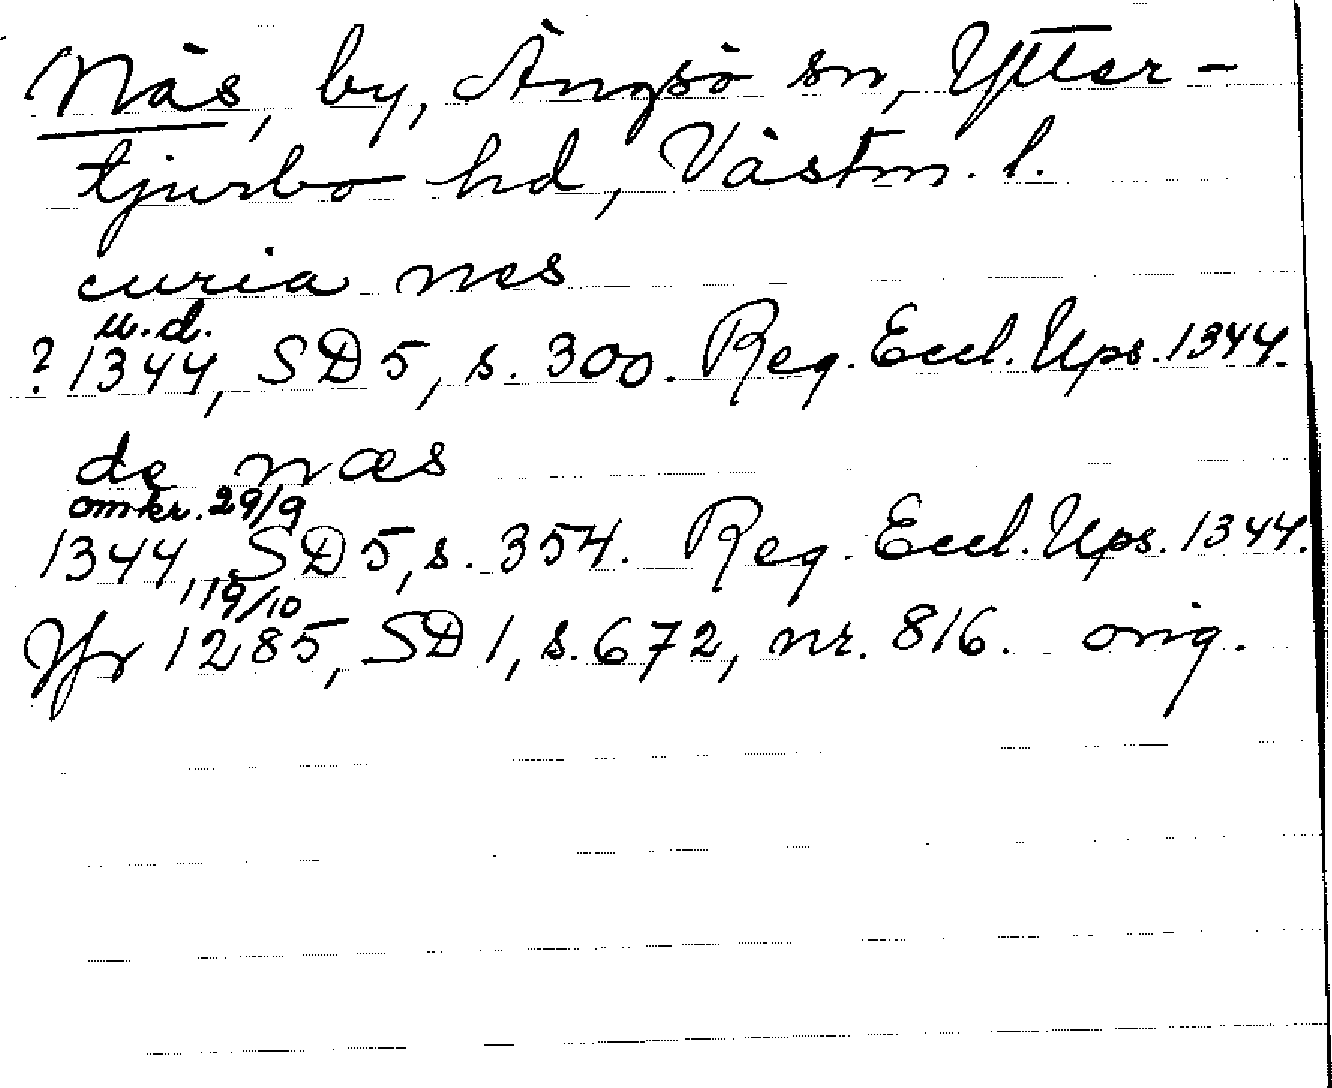 Näs, by, Ängsö sn, Ytter-
tjurbo hd, Västm. l.
curia nes
u.d.
? 1344, SD 5, s. 300. Reg. Eccl. Ups. 1344.
de næs
omkr. 29/9
1344, SD 5, s. 354. Reg. Eccl. Ups. 1344.
19/10
Jfr 1285, SD 1, s. 672, nr. 816. orig.